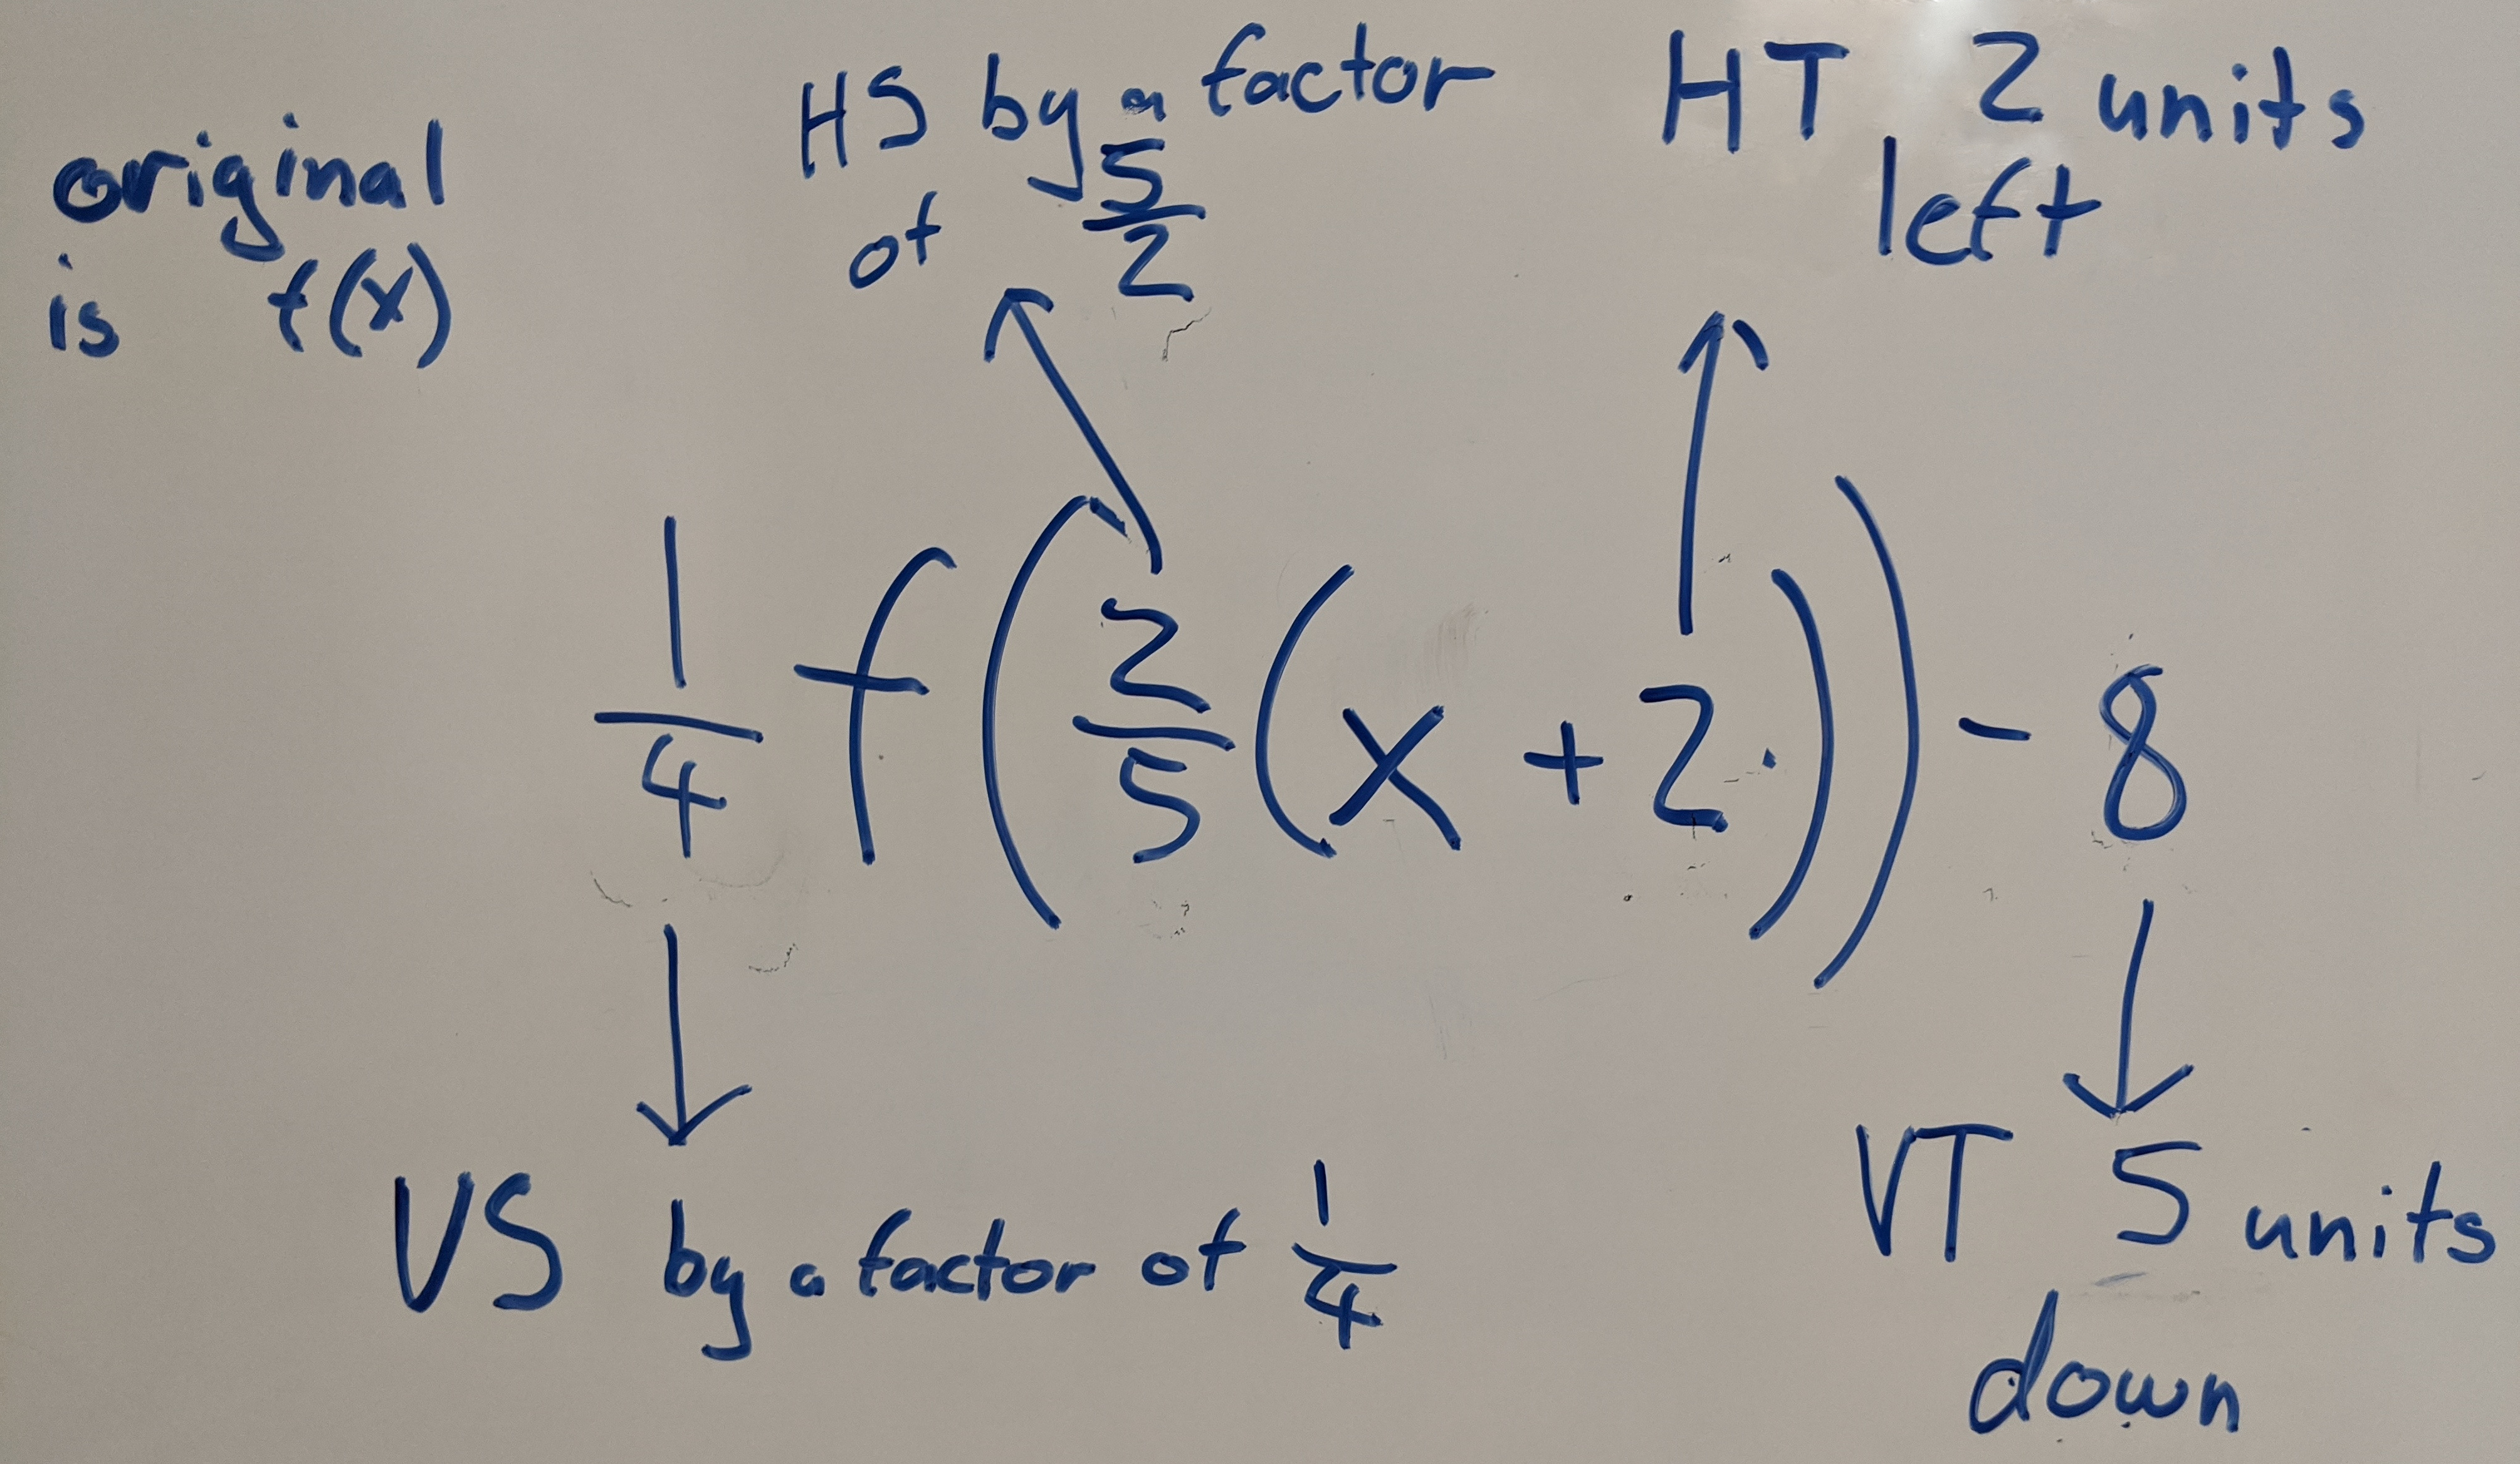 original
is f(x)
HS by a factor
of 5/2
HT 2 units
left
1/4 f(2/5(x + 2)) - 8
VS by a factor of 1/4
VT 5 units
down